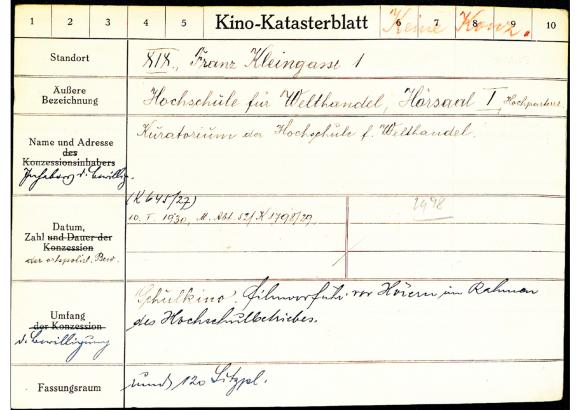 1 2 3 4 5 Kino-Katasterblatt 6 7 8 9 10
Keine Konz.
Standort XIX., Franz Kleingasse 1
Äußere Bezeichnung Hochschule für Welthandel, Hörsaal I, Hochparterre
Name und Adresse des Konzessionsinhabers Kuratorium der Hochschule f. Welthandel.
Inhabers d. Bewillig.
(K 645/27)
Datum, Zahl und Dauer der Konzession 10. I. 1930, M. Abt. 52/K 1798/29.
der ortspolizl. Bew.
Umfang der Konzession Schulkino. Filmvorführ. vor Hörern im Rahmen
d. Bewilligung des Hochschulbetriebes.
Fassungsraum rund 120 Sitzpl.